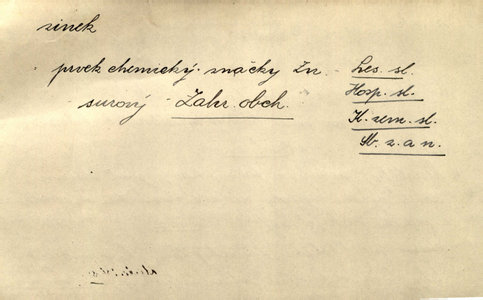 zinek
prvek chemický. značky Zn. - Les. sl.
surový - Zahr. obch. Hosp. sl.
K. zem. sl.
St. z. a n.